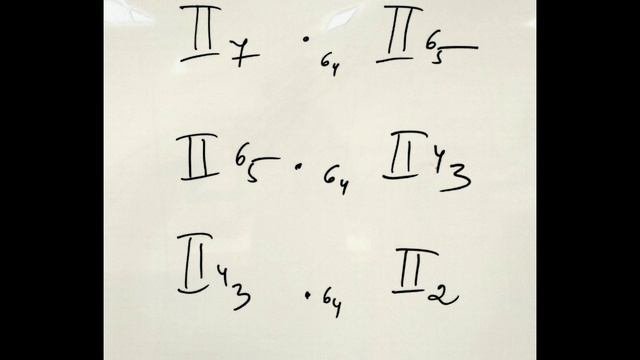 II7 · 64 II65
II65 · 64 II43
II43 · 64 II2